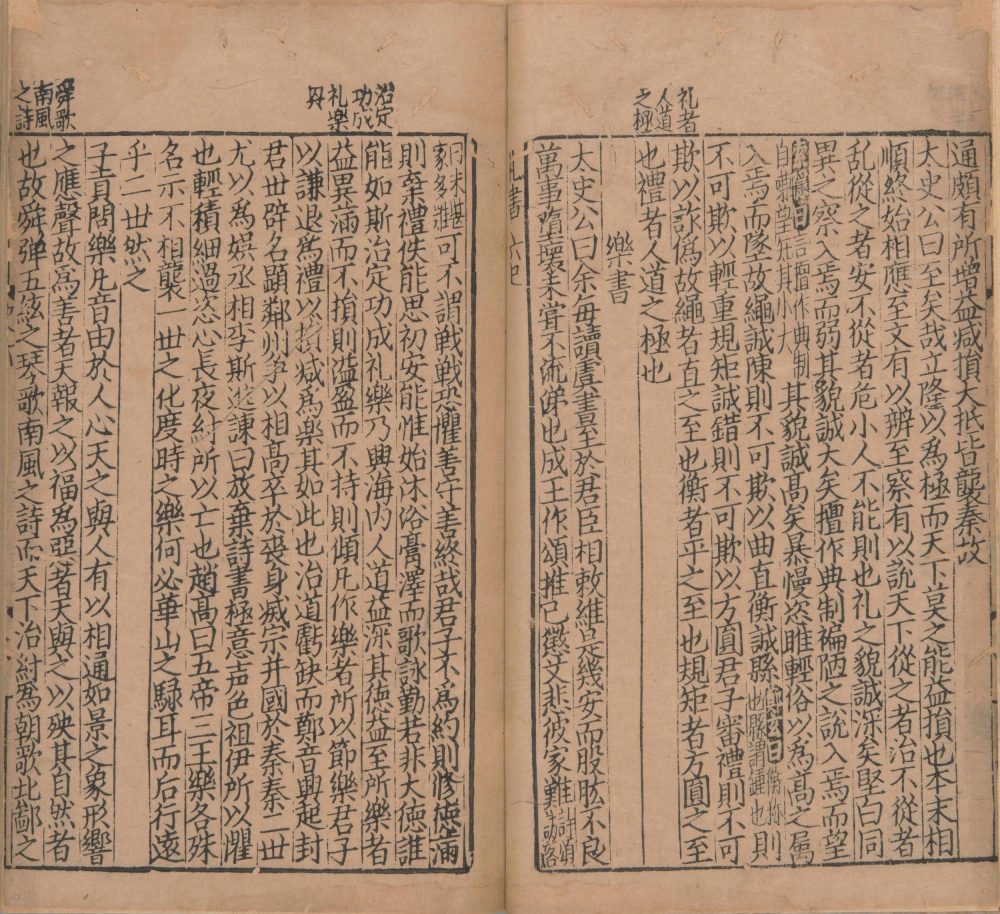 礼者
人道
之極
通頗有所增益减損大抵皆襲秦故
太史公曰至矣哉立隆以為極而天下莫之能益損也本末相
順終始相應至文有以辨至察有以說天下從之者治不從者
亂從之者安不從者危小人不能則也礼之貌誠深矣堅白同
異之察入焉而弱其貌誠大矣擅作典制褊陋之說入焉而望
索隱曰言擅作典制
自嗛望知其小大
其貌誠高矣暴慢恣睢輕俗以為高之屬
入焉而墜故繩誠陳則不可欺以曲直衡誠縣
鄭玄曰衡称
也縣謂錘也
則
不可欺以輕重規矩誠錯則不可欺以方圓君子審禮則不可
欺以詐偽故繩者直之至也衡者平之至也規矩者方圓之至
也禮者人道之極也
樂書
太史公曰余每讀虞書至於君臣相敕維是幾安而股肱不良
萬事墮壞未嘗不流涕也成王作頌推己懲艾悲彼家難
詩頌
治定
功成
礼樂
舜歌
南風
之詩
家多難
可不謂戰戰恐懼善守善終哉君子不為約則修徳滿
則棄禮佚能思初安能惟始沐浴膏澤而歌詠勤若非大徳誰
能如斯治定功成礼樂乃興海内人道益深其徳益至所樂者
益異滿而不損則溢盈而不持則傾凡作樂者所以節樂君子
以謙退為禮以損减為樂其如此也治道虧缺而鄭音興起封
君世辟名顯鄰州争以相高卒於喪身滅宗并國於秦秦二世
尤以為娯丞相李斯進諫曰放棄詩書極意声色祖伊所以懼
也輕積細過恣心長夜紂所以亡也趙高曰五帝三王樂各殊
名示不相襲一世之化度時之樂何必華山之騄耳而后行遠
乎二世然之
子貢問樂凡音由於人心天之與人有以相通如景之象形響
之應聲故為善者天報之以福為惡者天與之以殃其自然者
也故舜弹五絃之琴歌南風之詩而天下治紂為朝歌北鄙之